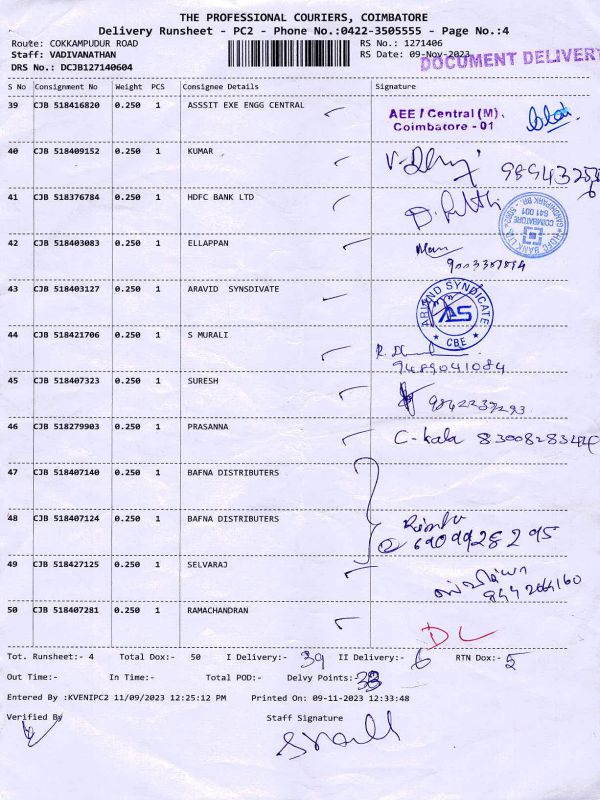 THE PROFESSIONAL COURIERS, COIMBATORE
Delivery Runsheet - PC2 - Phone No.:0422-3505555 - Page No.:4
Route: COKKAMPUDUR ROAD RS No.: 1271406
Staff: VADIVANATHAN RS Date: 09-Nov-2023
DRS No.: DCJB127140604 DOCUMENT DELIVERY
S No Consignment No Weight PCS Consignee Details Signature
39 CJB 518416820 0.250 1 ASSSIT EXE ENGG CENTRAL AEE / Central (M),
Coimbatore - 01
40 CJB 518409152 0.250 1 KUMAR
41 CJB 518376784 0.250 1 HDFC BANK LTD
HDFC BANK LTD. COIMBATORE 641 001
42 CJB 518403083 0.250 1 ELLAPPAN
43 CJB 518403127 0.250 1 ARAVID SYNSDIVATE
ARVIND SYNDICATE AS CBE
44 CJB 518421706 0.250 1 S MURALI
9489041084
45 CJB 518407323 0.250 1 SURESH
46 CJB 518279903 0.250 1 PRASANNA C-kala
47 CJB 518407140 0.250 1 BAFNA DISTRIBUTERS
48 CJB 518407124 0.250 1 BAFNA DISTRIBUTERS
49 CJB 518427125 0.250 1 SELVARAJ
50 CJB 518407281 0.250 1 RAMACHANDRAN DL
Tot. Runsheet:- 4 Total Dox:- 50 I Delivery:- 39 II Delivery:- 6 RTN Dox:- 5
Out Time:- In Time:- Total POD:- Delvy Points:- 33
Entered By :KVENIPC2 11/09/2023 12:25:12 PM Printed On: 09-11-2023 12:33:48
Verified By Staff Signature